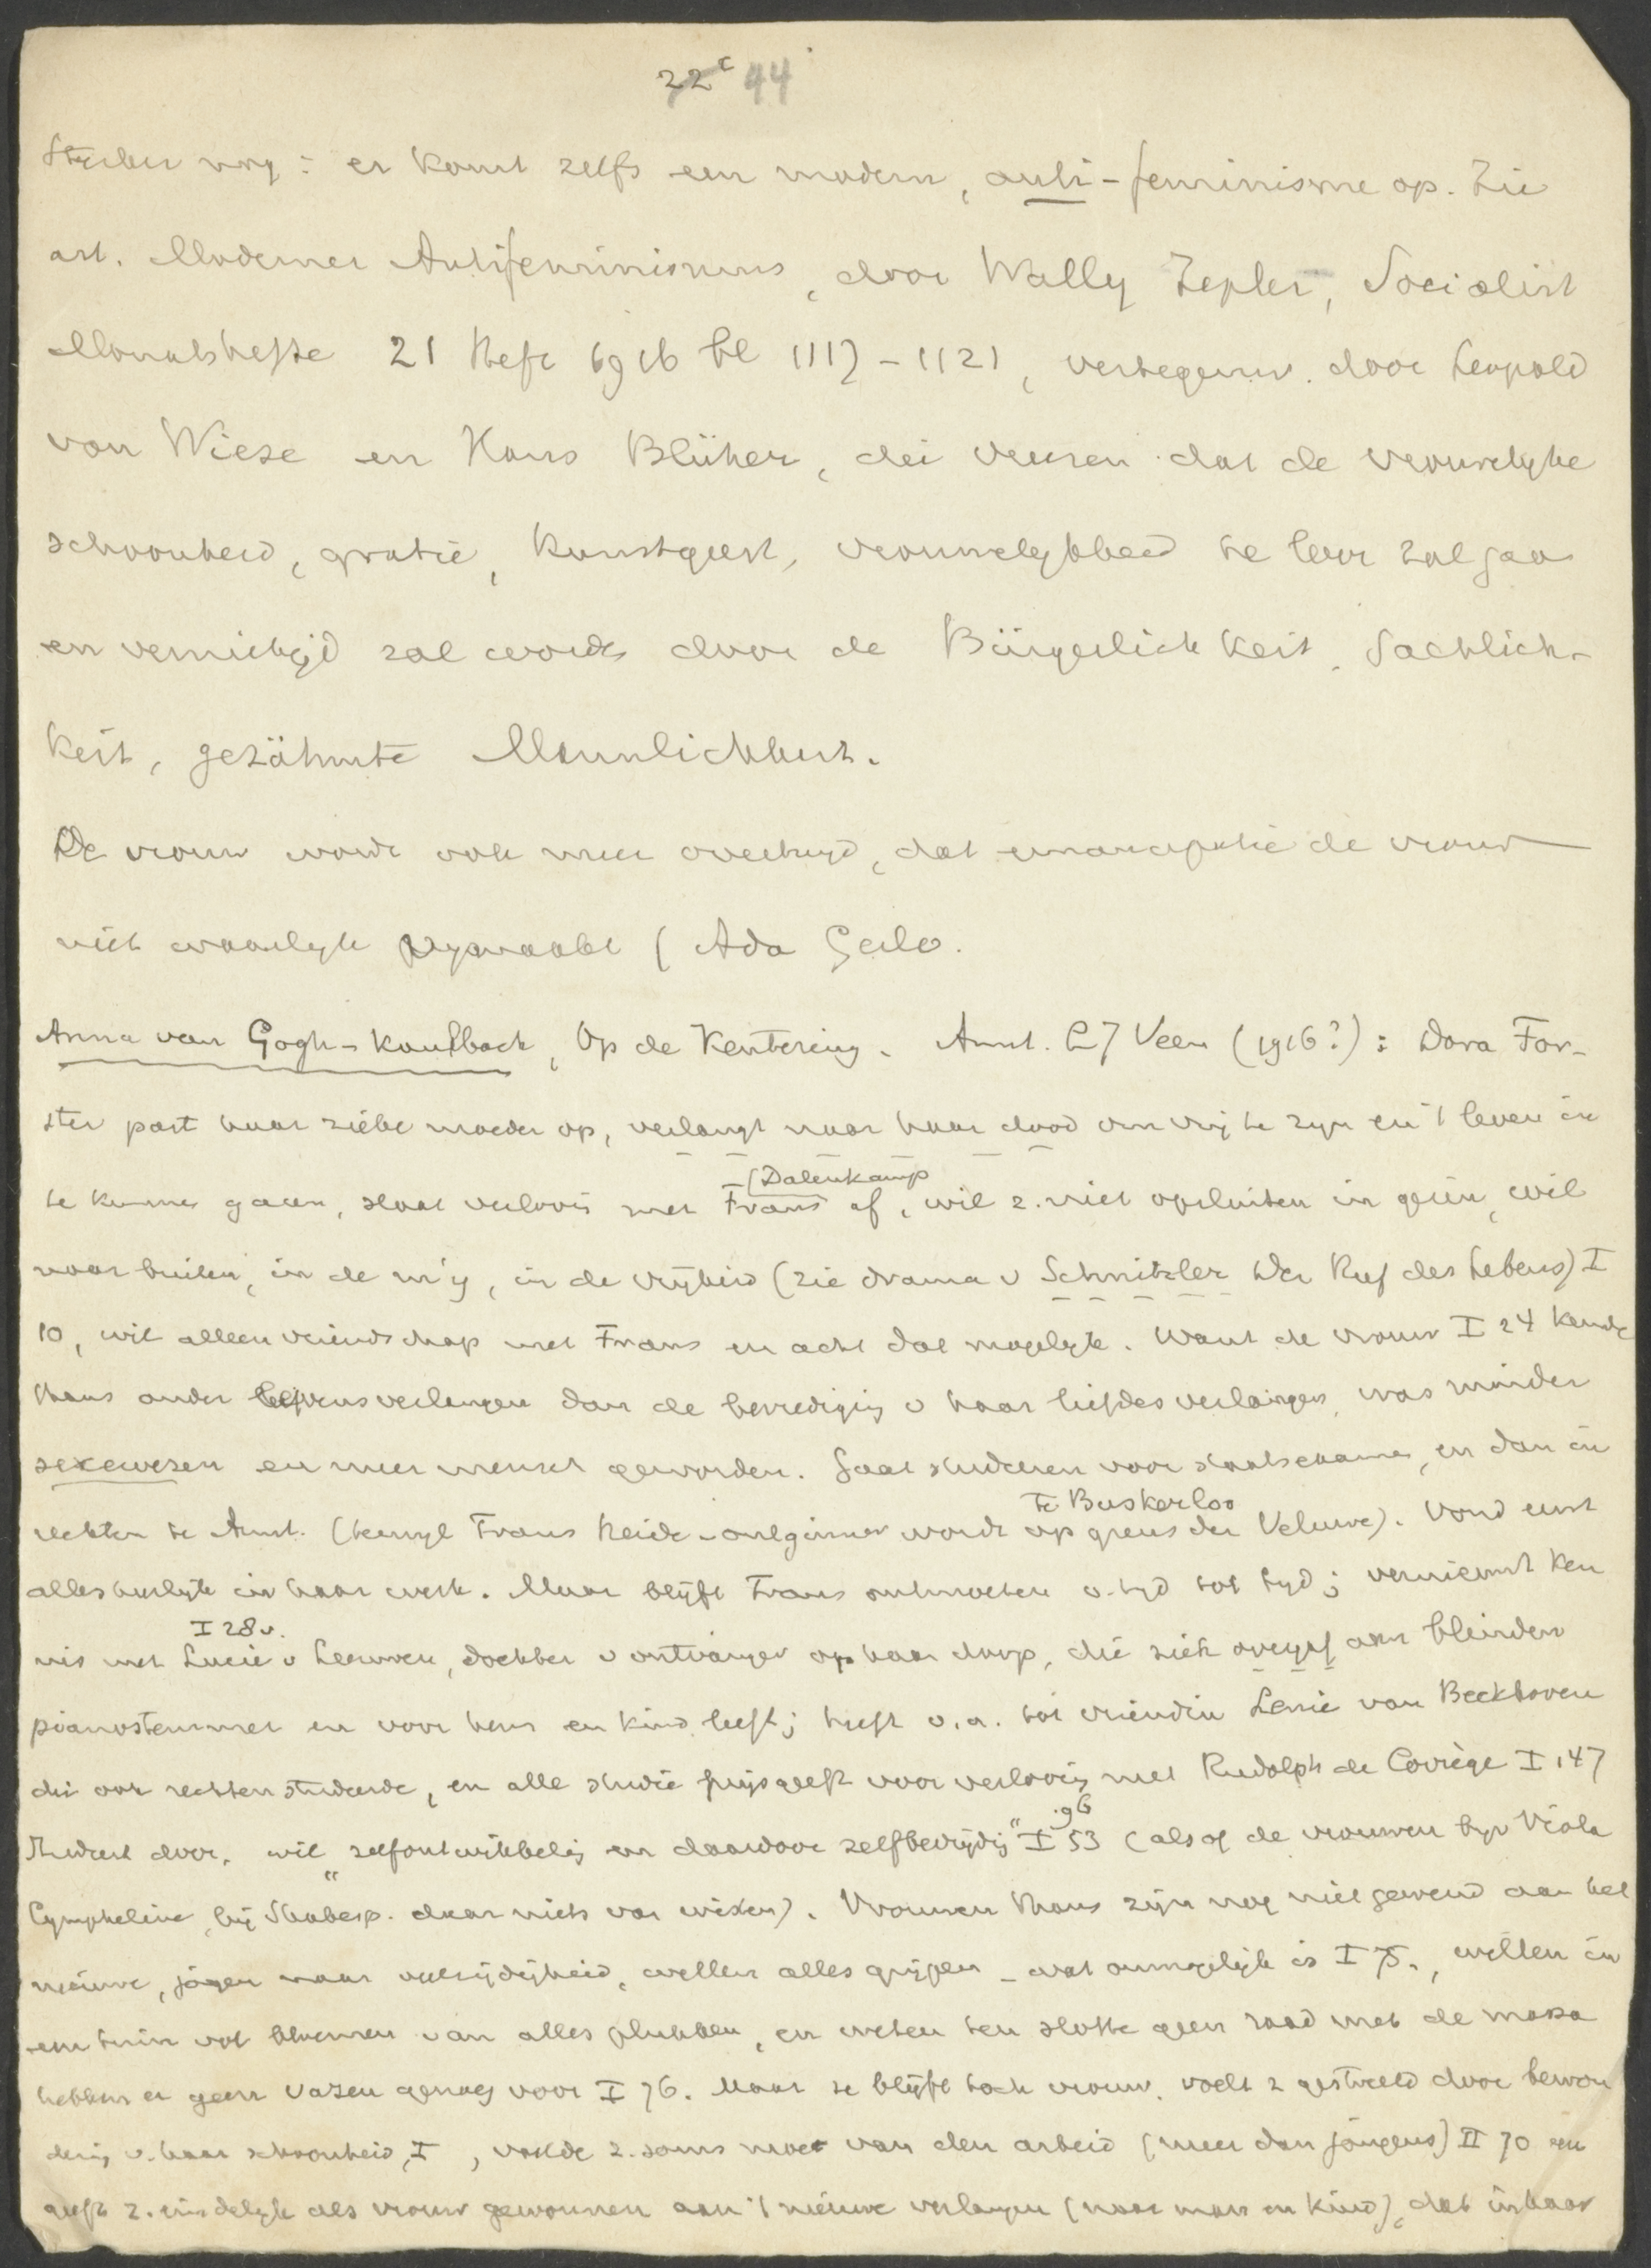 22c 44
Sterker nog: er komt zelfs een modern, anti-feminisme op. Zie
art. Moderner Antifeminismus, door Wally Zepler, Socialist
Monatshefte 21 Heft 1916 bl 1117-1121, vertegenw. door Leopold
von Wiese en Hans Blüher, die vreezen dat de vrouwelyke
schoonheid, gratie, kunstgeest, vrouwelykheid te loor zal gaan
en vernietigd zal worden door de Bürgerlichkeit, Sachlich-
keit, gezähmte Mannlichkeit.
De vrouw wordt ook meer overtuigd, dat emancipatie de vrouw
niet waarlyk vrymaakt (Ada Gerlo.
Anna van Gogh-Kaulbach, Op de Kentering. Amst. LJ Veen (1916?): Dora For-
ster past haar zieke moeder op, verlangt naar haar dood om vrij te zyn en 't leven in
(Dalenkamp
te kunnen gaan, slaat verloving met Frans af, wil z. niet opsluiten in gezin, wil
naar buiten, in de m'y, in de vrijheid (zie drama v Schnitzler Der Ruf des Lebens) I
10, wil alleen vriendschap met Frans en acht dat mogelyk. Want de vrouw I 24 kende
thans ander levensverlangen dan de bevrediging v haar liefdesverlangen, was minder
sexewezen en meer mensch geworden. Gaat studeeren voor staatsexamen, en dan in
te Buskerloo
rechten te Amst. (terwyl Frans heide-ontginner wordt op grens der Veluwe). Vond eerst
alles heerlyk in haar werk. Maar blijft Frans ontmoeten v. tyd tot tyd; vernieuwt ken
I 28 v.
nis met Lucie v Leeuwen, dochter v ontvanger op haar dorp, die zich overgaf aan blinden
pianostemmer en voor hem en kind leeft; heeft o.a. tot vriendin Lenie van Beekhoven
die ook rechten studeerde, en alle studie prijsgeeft voor verloving met Rudolph de Corrège I 147
96
Studeert door, wil „zelfontwikkeling en daardoor zelfbevrijding" I 53 (alsof de vrouwen byv Viola
Cympheline, bij Shakesp. daar niets van wisten). Vrouwen thans zijn nog niet gewend aan het
nieuwe, jagen naar veelzijdigheid, willen alles grijpen - wat onmogelyk is I 75., willen in
een tuin vol bloemen van alles plukken, en weten ten slotte geen raad met de massa
hebben er geen vazen genoeg voor I 76. Maar ze blijft toch vrouw, voelt z gestreeld door bewon
dering v. haar schoonheid, I , voelde z. soms moe van den arbeid (meer dan jongens) II 70 en
geeft z. eindelyk als vrouw gewonnen aan 't nieuwe verlangen (naar man en kind), dat in haar